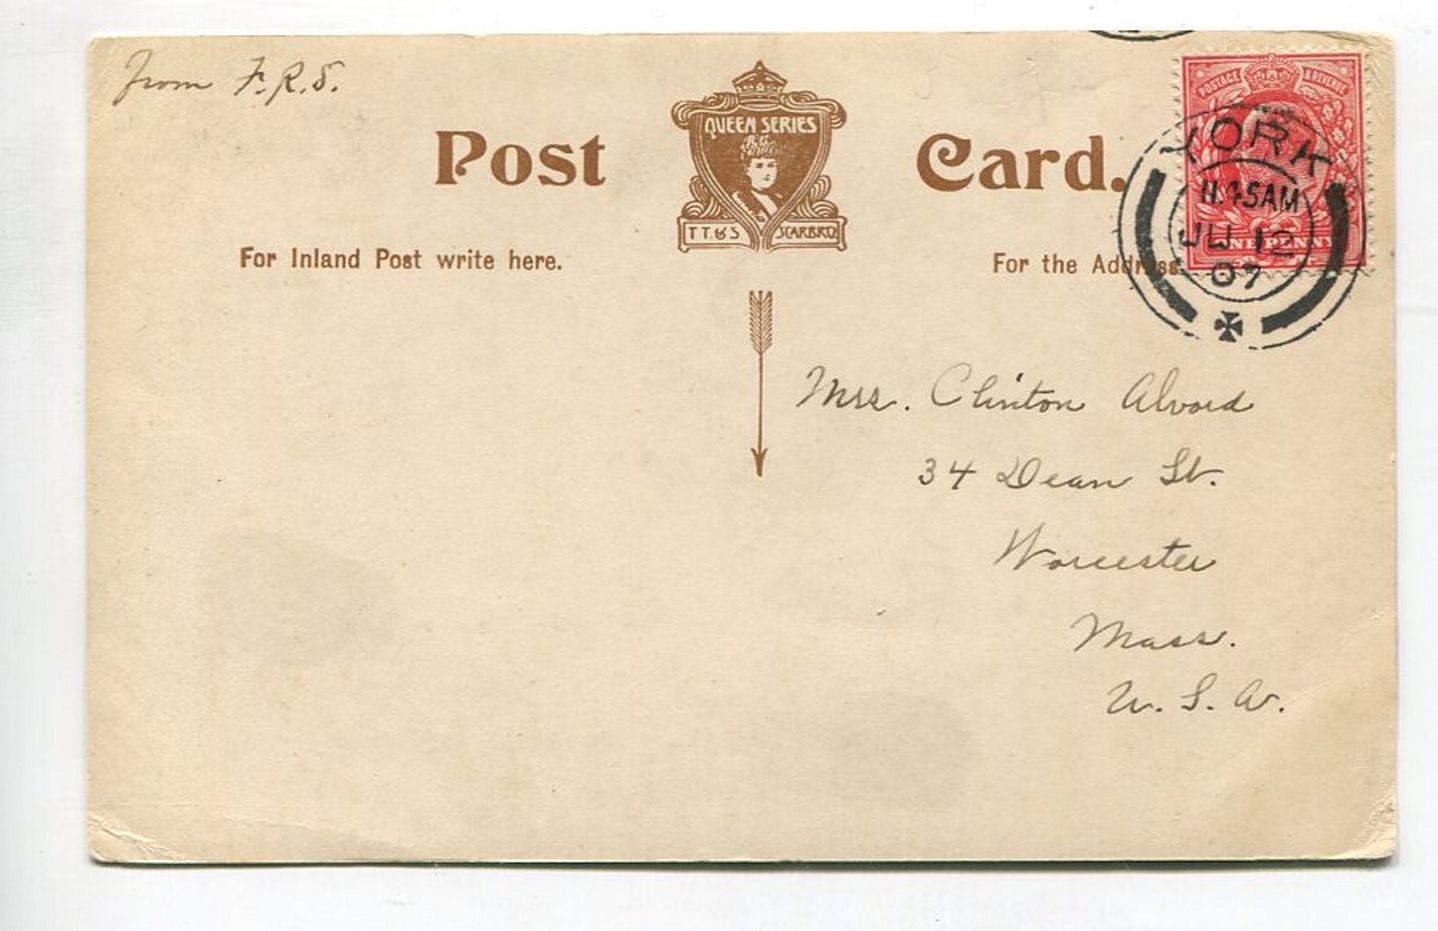 From F.R.S.
Post Card.
QUEEN SERIES
T.T.&S SCARBRO
POSTAGE & REVENUE
ONE PENNY
YORK
JU 12
07
For Inland Post write here.
For the Address
Mrs. Clinton Alvord
34 Dean St.
Worcester
Mass.
U. S. A.